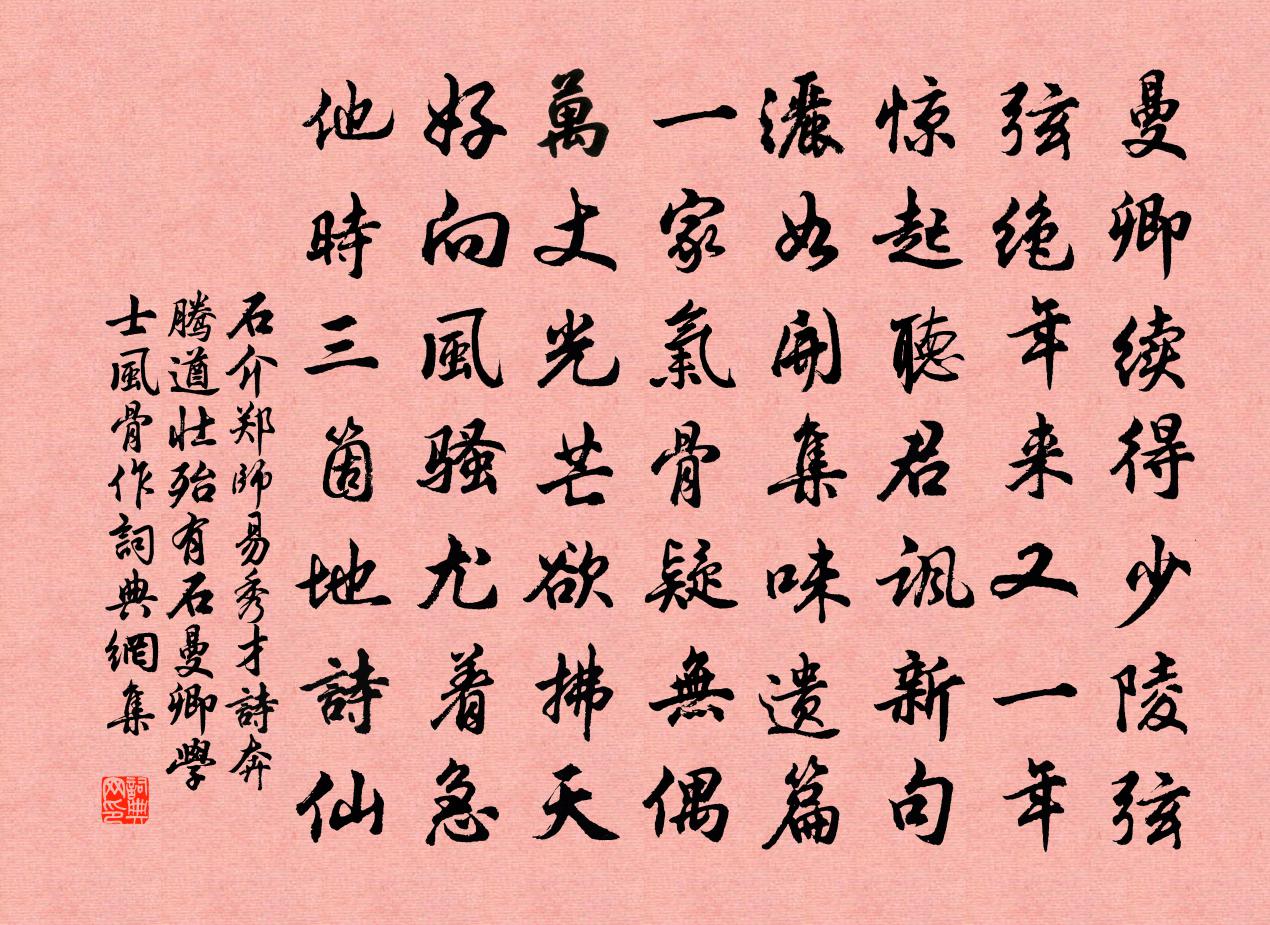 曼卿续得少陵弦
弦绝年来又一年
惊起聽君讽新句
灑如開集味遗篇
一家氣骨疑無偶
萬丈光芒欲拂天
好向風骚尤着急
他時三箇地詩仙
石介郑師易秀才詩奔
腾道壮殆有石曼卿學
士風骨作詞典網集
詞典
网印